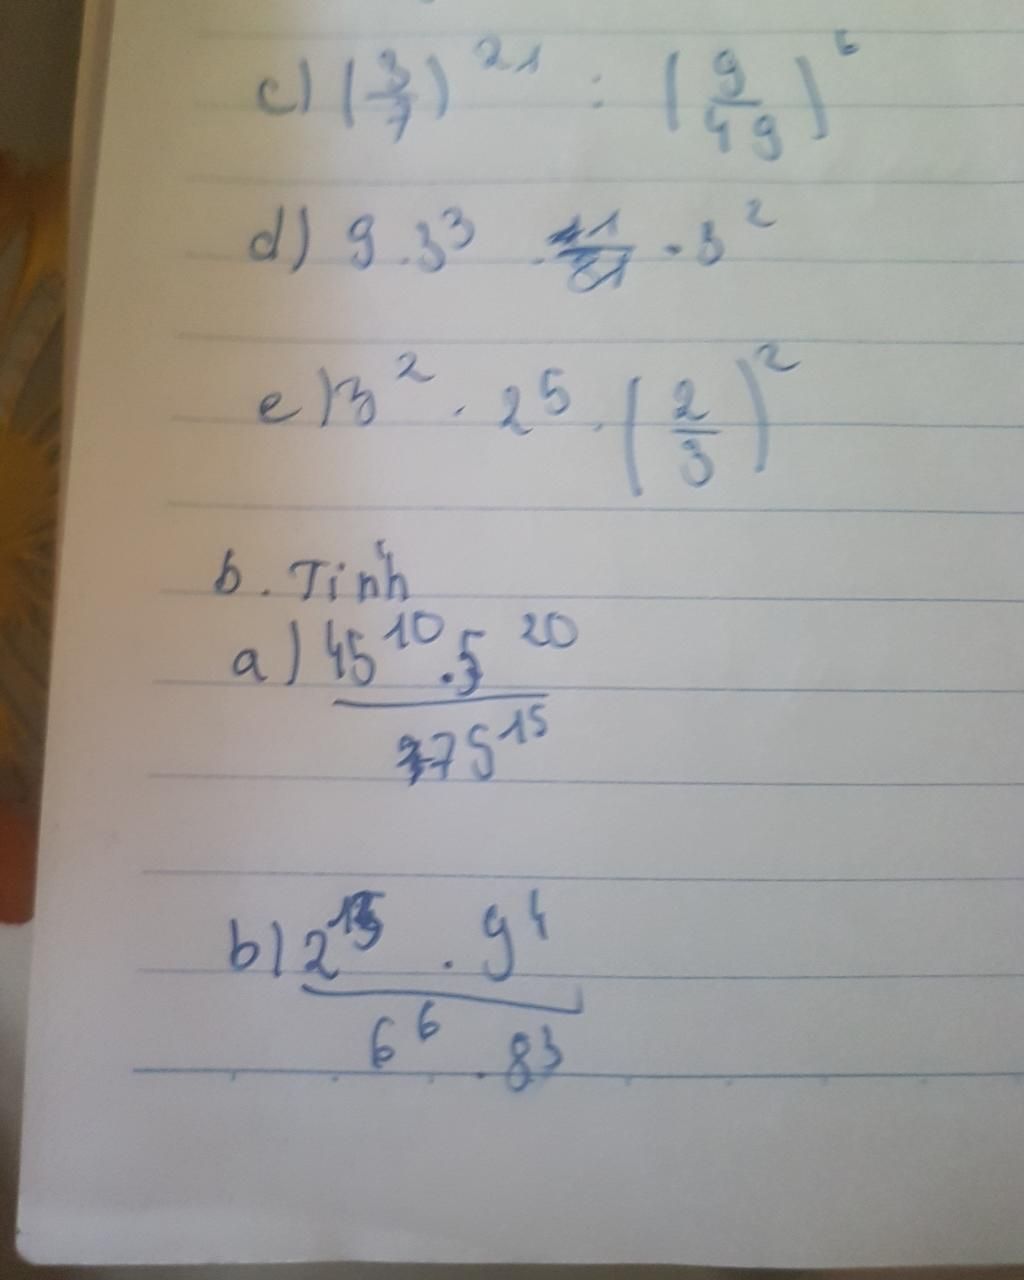 c) (3/7)^21 : (9/49)^6
d) 9 . 3^3 . 1/81 . 3^2
e) 3^2 . 2^5 . (2/3)^2
b. Tính
a) 45^10 . 5^20
75^15
b) 2^15 . 9^4
6^6 . 8^3